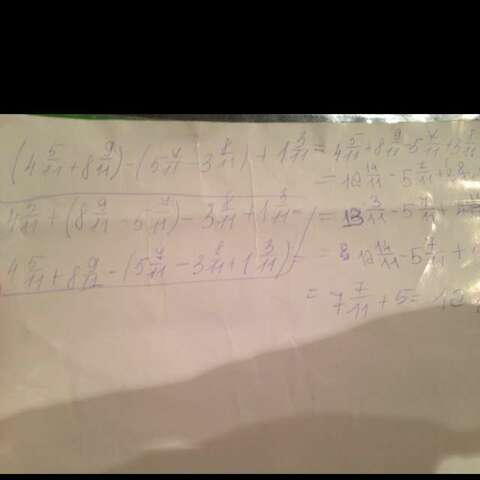 (4 5/11 + 8 9/11) - (5 7/11 - 3 8/11) + 1 3/11 = 4 5/11 + 8 9/11 - 5 7/11 + 3 8/11
= 12 14/11 - 5 7/11 + 
4 5/11 + (8 9/11 - 5 7/11) - 3 8/11 + 1 3/11 = 13 3/11 - 5 7/11 +
4 5/11 + 8 9/11 - (5 7/11 - 3 8/11 + 1 3/11) = = 12 14/11 - 5 7/11 +
= 7 7/11 + 5 = 12